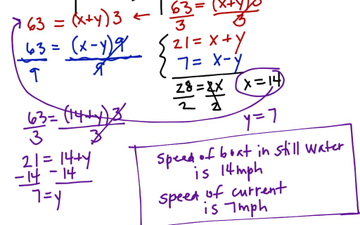 63 = (x+y)3 ←
63 = (x+y)3
3 3
63 = (x-y)9
9 9
21 = x+y
7 = x-y
28 = 2x
2 2
x = 14
y = 7
63 = (14+y)3
3 3
21 = 14+y
-14 -14
7 = y
speed of boat in still water
is 14mph
speed of current
is 7mph